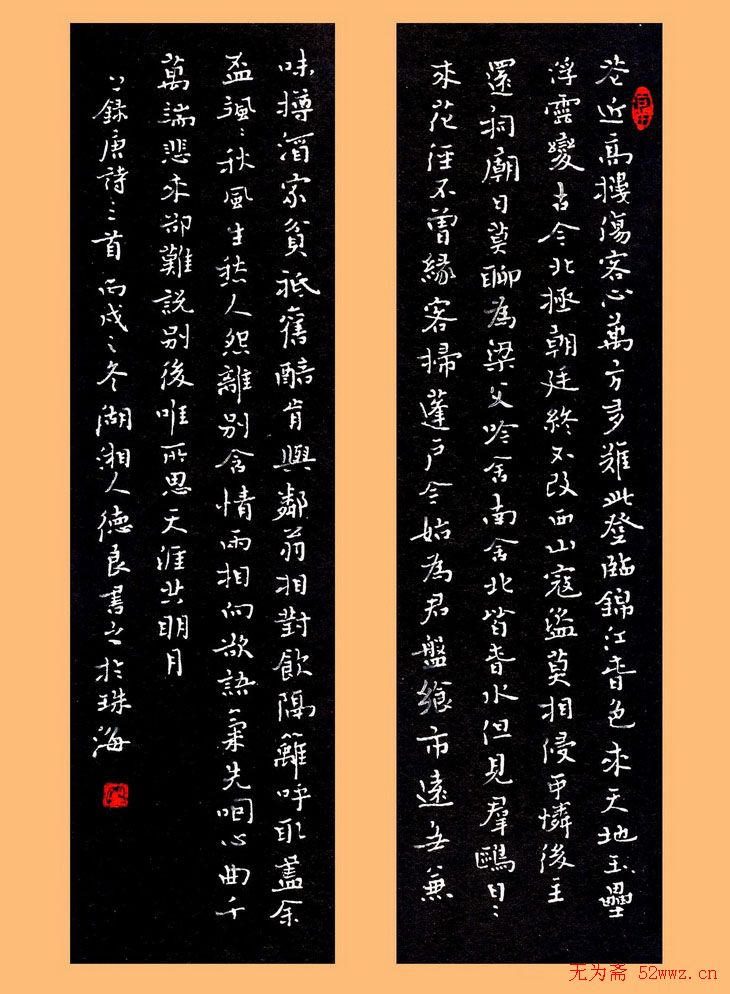 花近高樓傷客心萬方多難此登臨錦江春色來天地玉壘
浮雲變古今北極朝廷終不改西山寇盜莫相侵可憐後主
還祠廟日莫聊為梁父吟舍南舍北皆春水但見羣鷗日々
來花徑不曾緣客掃蓬戶今始為君盤飧市遠无兼
味樽酒家貧祗舊醅肯與鄰翁相對飲隔籬呼取盡余
盃颯々秋風生愁人怨離別含情兩相向欲語氣先咽心曲千
萬端悲來卻難說別後唯所思天涯共明月
錄唐詩三首丙戌之冬湖湘人德良書之於珠海
无为斋 52wwz.cn